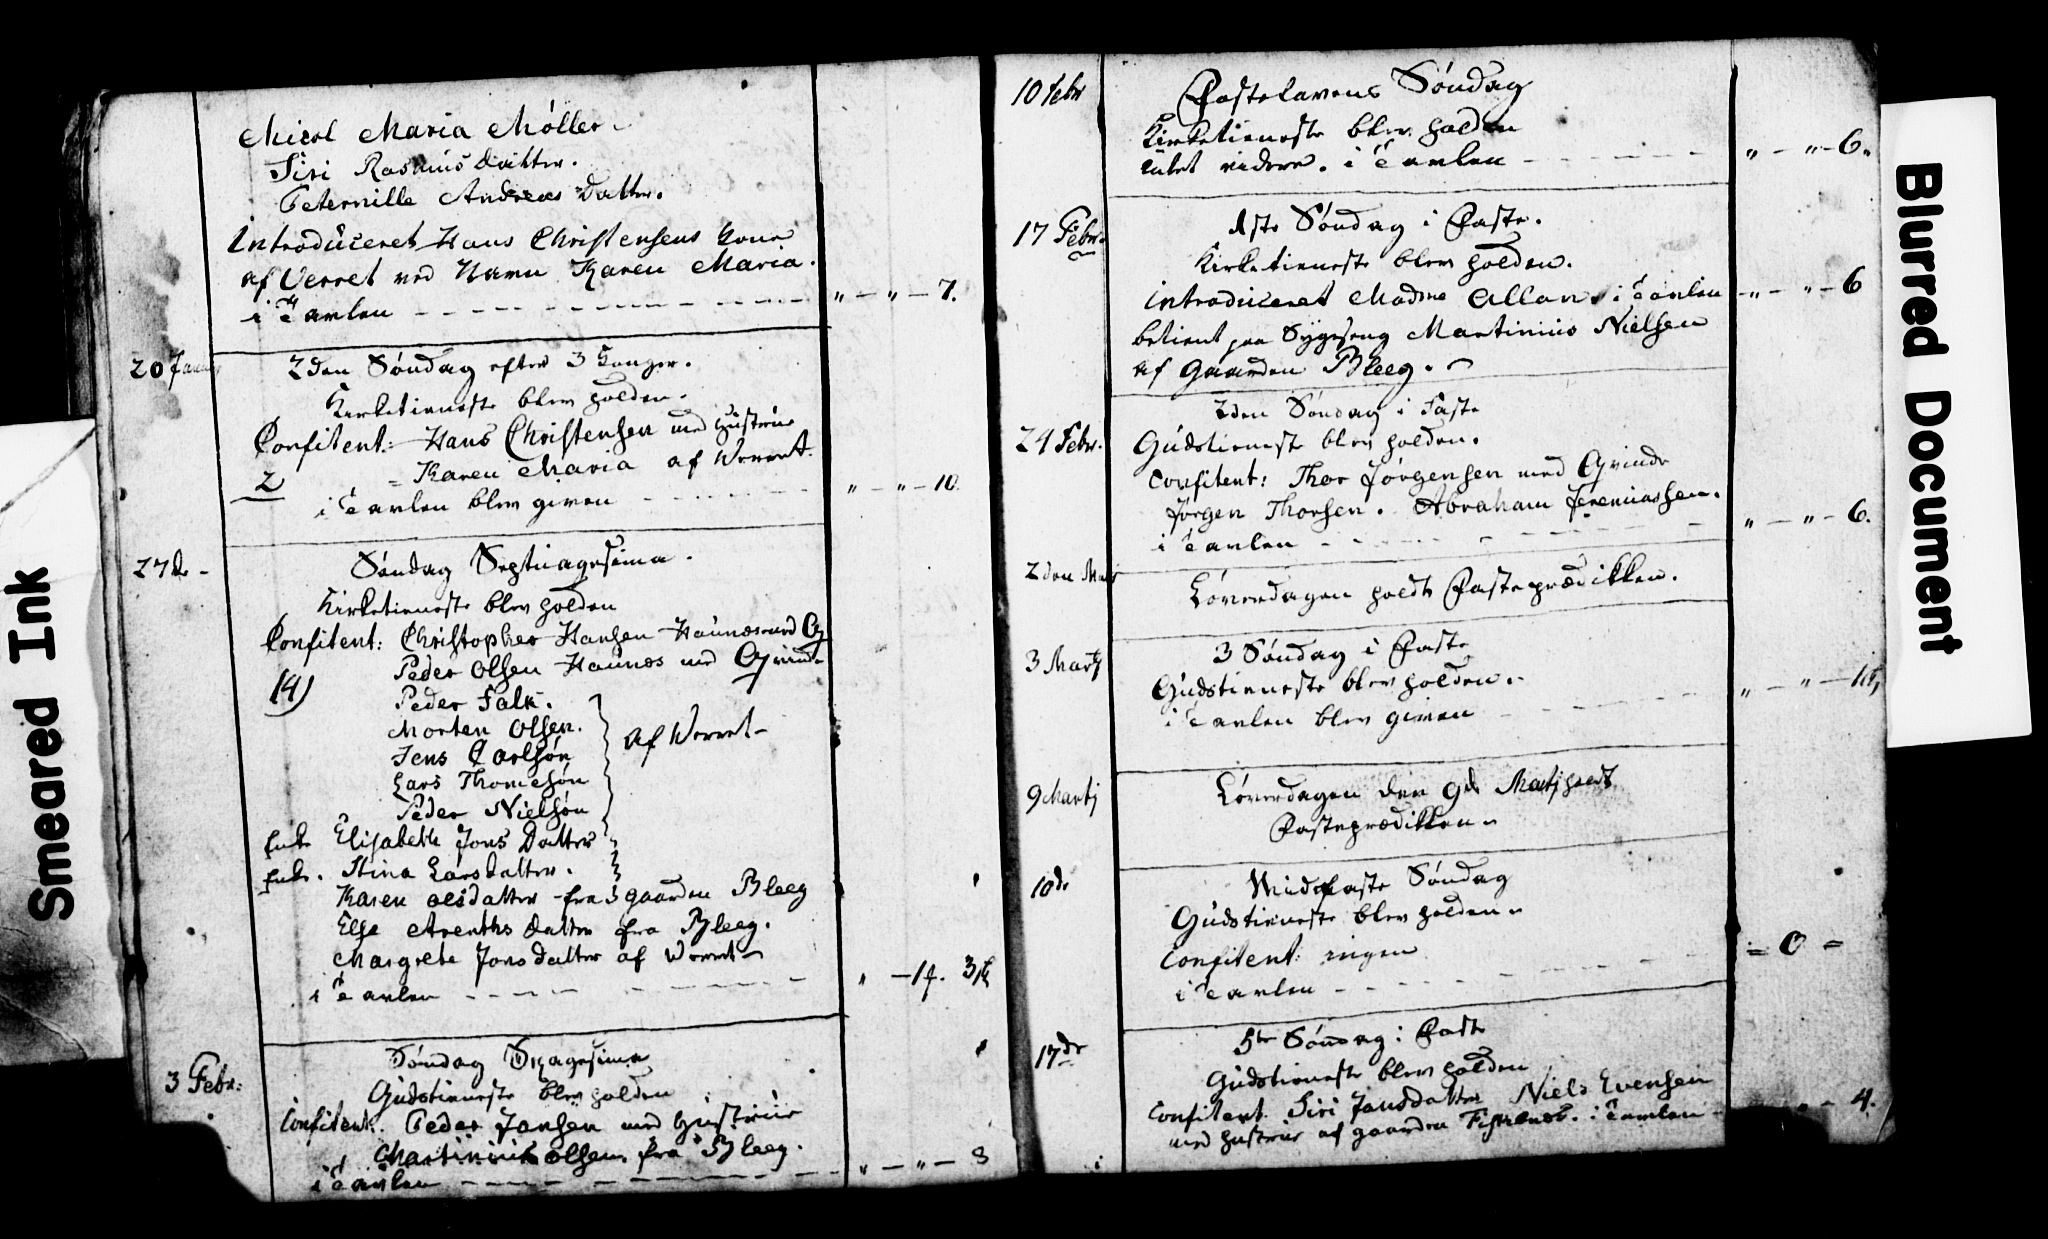 Micel Maria Møller
Siri Rasmus datter.
Peternille Andreas Datter.
Introduceret Hans Christensens Kone
af Verret ved Navn Karen Maria.
i Tavlen „ — „ — 7.
20 Janu
2den Søndag efter 3 Konger.
Kirketieneste blev holden.
Confitent: Hans Christensen med Hustrue
2 = Karen Maria af Werret.
i Tavlen blev given „ — „ — 10.
27 d.
Søndag Septuagesima.
Kirketieneste blev holden
Confitent: Christopher Hansen Haunes med Q
14) Peder Olsen Haunes med Qvinde
Peder Falk.
Morten Olsen.
Jens Carlsøn
af Werret
Lars Thomesøn
Peder Nielsøn
Enke Elisabeth Jons Datter
Enke. Stina Larsdatter.
Karen Olsdatter fra gaarden Bleeg
Else Arenths datter fra Bleeg.
Margrete Jonsdatter af Werret
i Tavlen „ — 1 3
3 Febr:
Søndag Sexagesima
Gudstieneste blev holden
Confitent. Peder Jansen med Hustrue
Martinius Olsen fra Bleeg.
i Tavlen „ — „ — 8
10 Febr
Fastelavens Søndag
Kirketieneste blev holden
intet videre. i Tavlen „ — „ — 6„
17 Febr.
1ste Søndag i Faste.
Kirketieneste blev holden.
introduceret Madme Allan. i Tavlen — „ — „ — 6
betient paa Sygeseng Martinius Nielsen
af Gaarden Bleeg.
2den Søndag i Faste
24 Febr.
Gudstieneste blev holden.
Confitent: Thor Jørgensen med Qvinde
Jørgen Thorsen. Abraham Jeremiassen.
i Tavlen „ — „ — 6.
2den Mar
Løverdagen holdt Fasteprædikken.
3 Martj
3 Søndag i Faste
Gudstieneste blev holden.
i Tavlen blev given „ — „ —
9 Martj
Løverdagen den 9de Martj holdt
Fasteprædikken
10 de
Midfaste Søndag
Gudstieneste blev holden
Confitent: ingen
i Tavlen = 0 =
17 de
5te Søndag i Faste
Gudstieneste blev holden
Confitent. Siri Jansdatter Niels Evensen
med Hustrue af gaarden. i Tavlen — 4.
Smeared Ink
Blurred Document